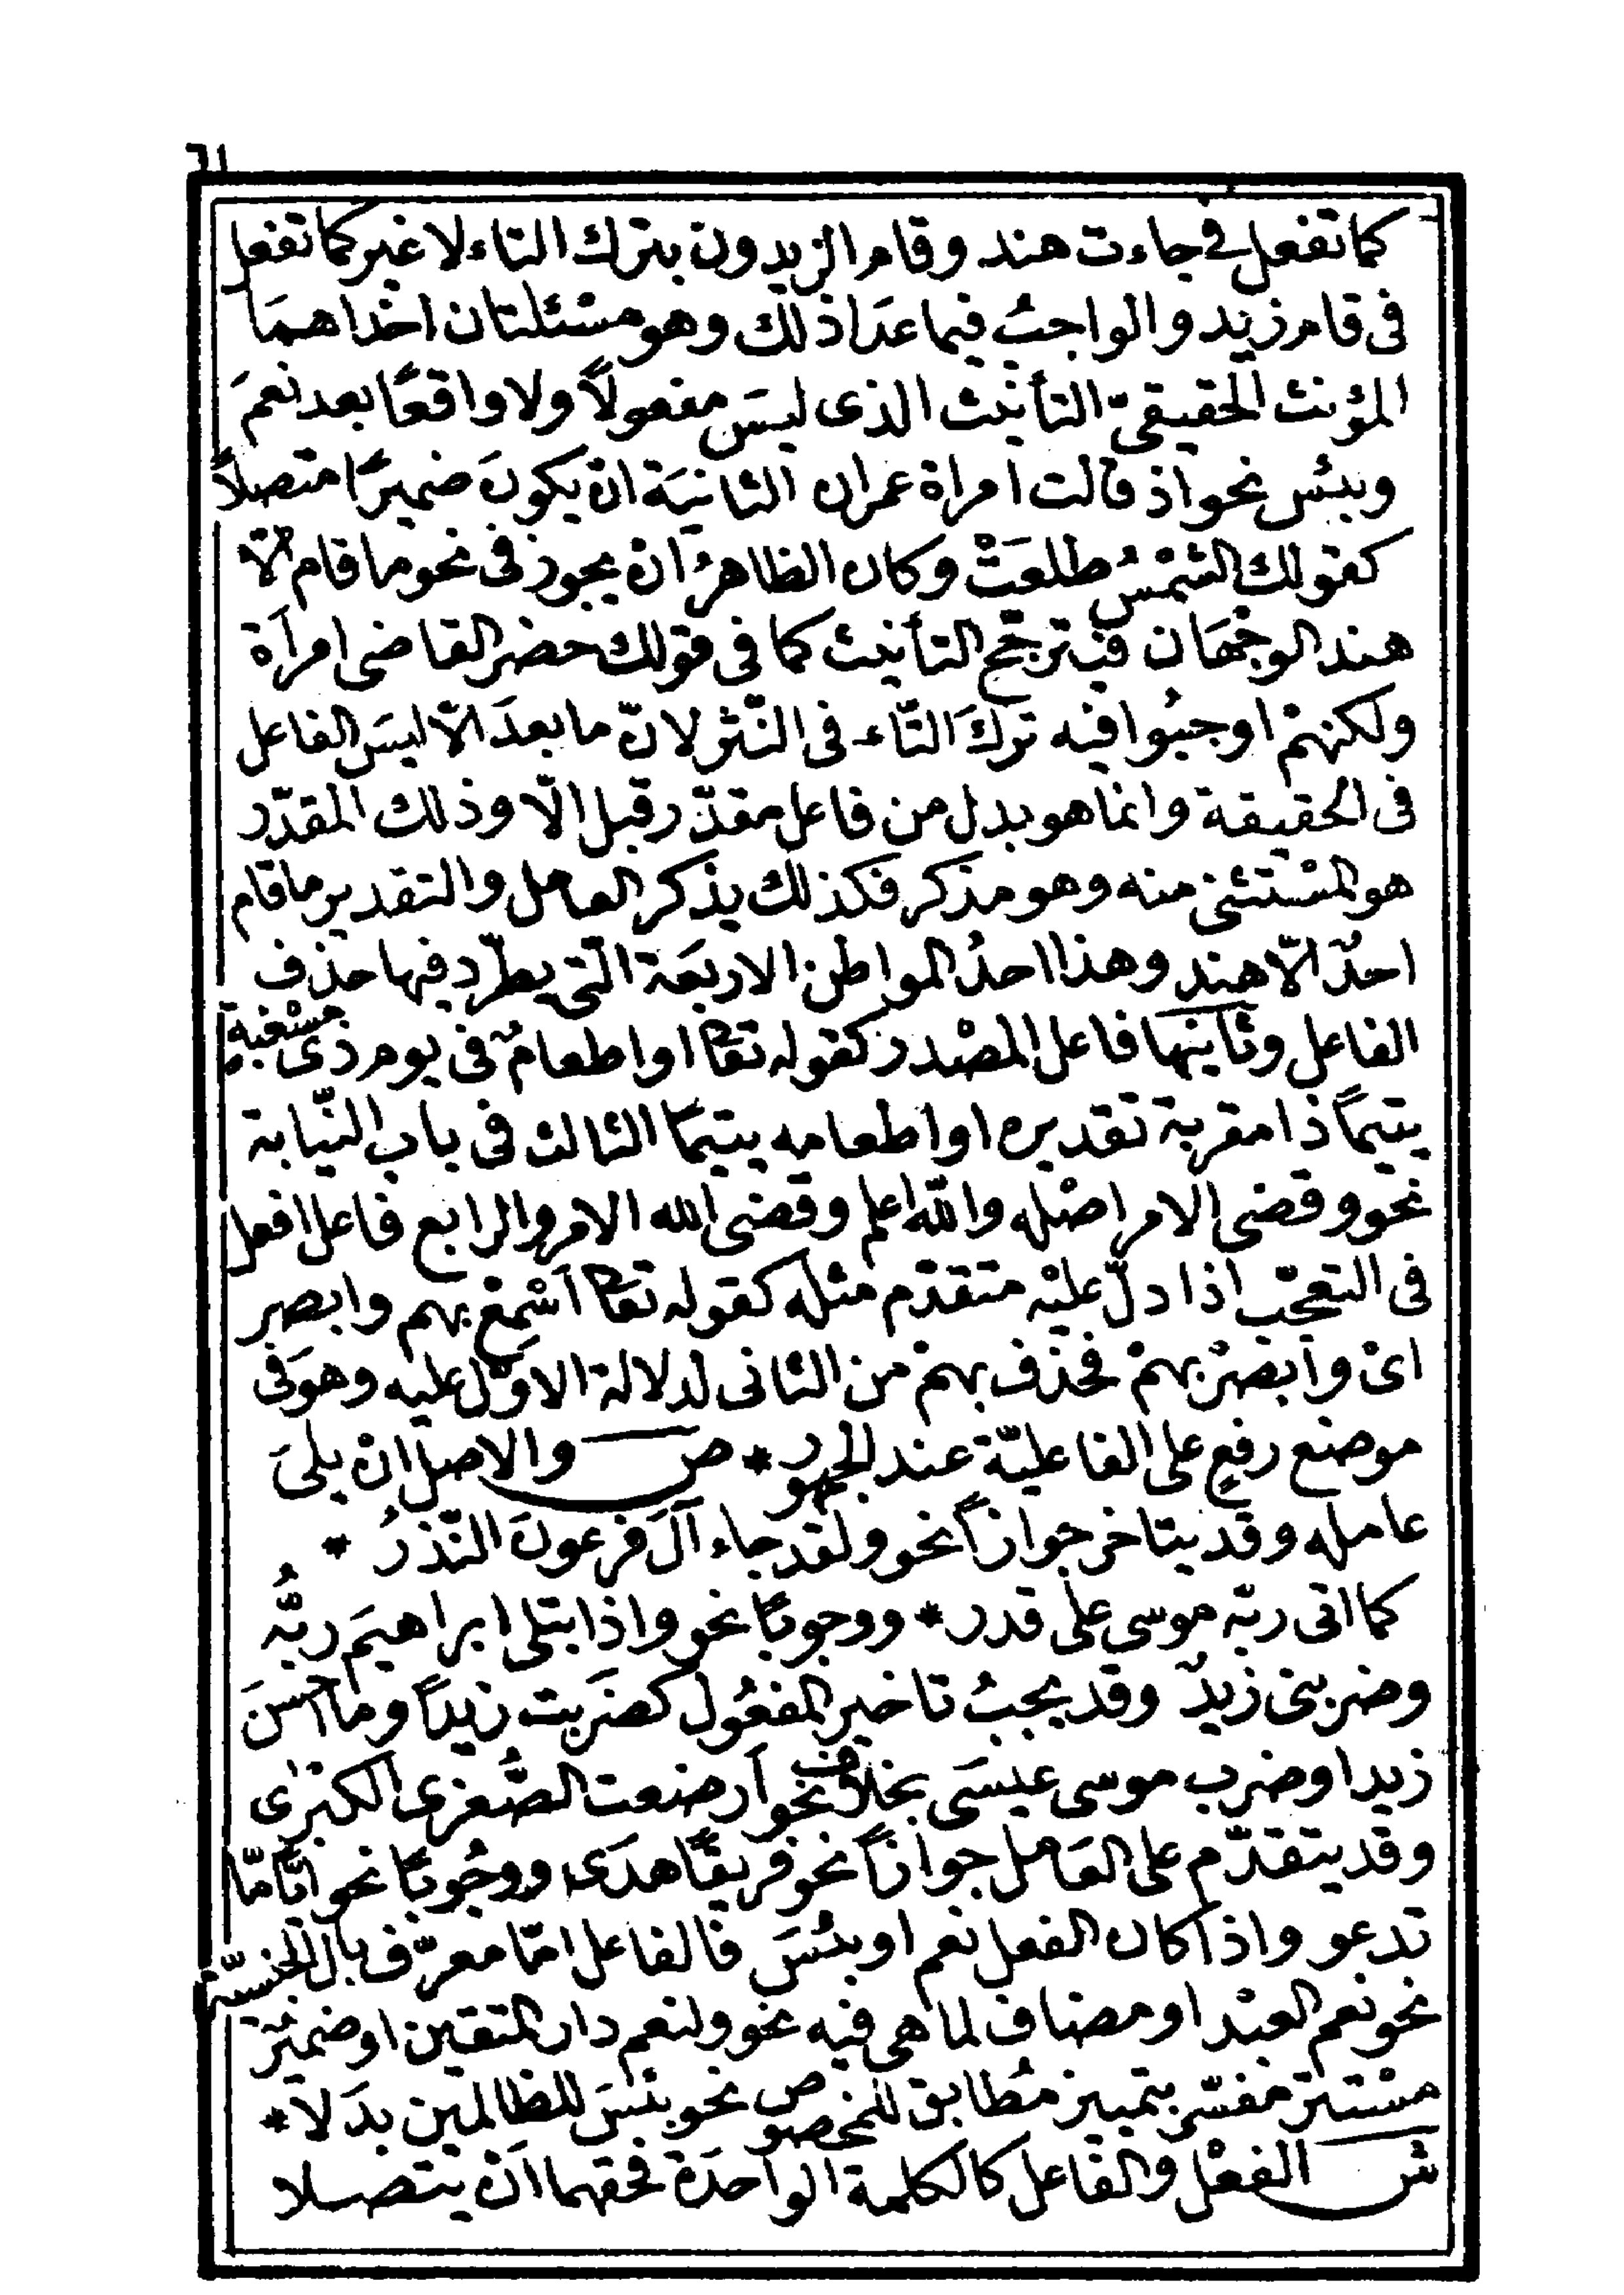 ٦١
كما تفعل فى جاءت هند وقام الزيدون بترك التاء لا غير كما تفعل
فى قام زيد والواجبُ فيما عَدَا ذلك وهو مسْئلتان احْداهمَا
المؤنث الحقيقىّ التأنيث الذى ليسَ مفعولاً ولا واقعًا بعد نعمَ
وبئس نحو اذ قالت امراة عمران الثانيَة ان يكونَ ضميرًا متصلاً
كقولك الشمْسُ طلعَتْ وكان الظاهرُ ان يجوز فى نحو ما قام الّا
هند الوجْهَان فيترجّح التأنيث كما فى قولك حضر القاضى امرأة
ولكنهمْ اوجبُوا فيه تركَ التّاء فى النّثر لانّ ما بعدَ الّا ليسَ الفاعل
فى الحقيقة وانما هو بدل من فاعل مقدّر قبل الّا وذلك المقدّر
هو المسْتثنى منه وهو مذكر فكذلك يذكر العامل والتقدير ما قام
احدٌ الّا هند وهذا احدُ المواطن الاربعَة التى يطّرد فيها حذف
الفاعل وثانيها فاعل المصْدر كقوله تعا او اطعامٌ فى يوم ذى مسْغبةٍ
يتيماً ذا مقربة تقديره او اطعامه يتيمًا الثالث فى باب النّيابة
نحو وقضى الامر اصْله والله اعلم وقضى الله الامر والرابع فاعل افعل
فى التعجّب اذا دلّ عليْه متقدّم مثله كقوله تعا أسْمعْ بهم وابصر
اىْ وأبصرْ بهمْ فحذف بهمْ من الثانى لدلالة الاوّل عليه وهوَ فى
موضع رفعٍ على الفاعليّة عند الجمهور * ص والاصل انْ يلىَ
عامله وقد يتاخر جوازاً نحو ولقد جاء آلَ فرعونَ النّذرُ *
كما اتى ربّه موسى على قدر * ووجوبًا نحو واذ ابتلى ابراهيمَ ربُّهُ
وضربنى زيدٌ وقد يجبُ تاخير المفعُول كضرَبت زيداً وما احْسنَ
زيدا وضرب موسى عيسَى بخلاف نحو أرضعت الصُّغرى الكبْرى
وقد يتقدّم على العَامل جوازاً نحو فريقًا هدَى ووجُوبًا نحو ايًّا مّا
تدعو واذا كان الفعل نعم او بئسَ فالفاعل امّا معرّف بال الجنسيّة
نحو نعم العبْد او مضاف لما هى فيه نحو ولنعم دار المتقين او ضميْرٌ
مسْتترٌ مفسّر بتمييز مُطابق للمخصوص نحو بئسَ للظالمين بدَلا *
ش الفعْل والفاعل كالكلمة الواحدَة فحقهما أن يتصلا